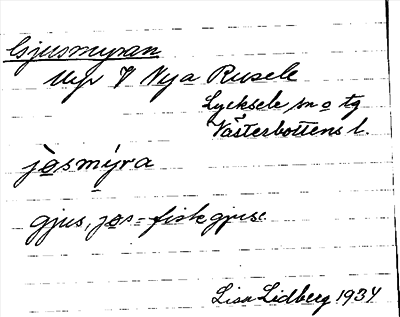 Gjusmyran
Myr V Nya Rusele
Lycksele sn o tg
Västerbottens l.
jo̲smýra
gjus, jo̲s = fiskgjuse
Lisa Lidberg 1934